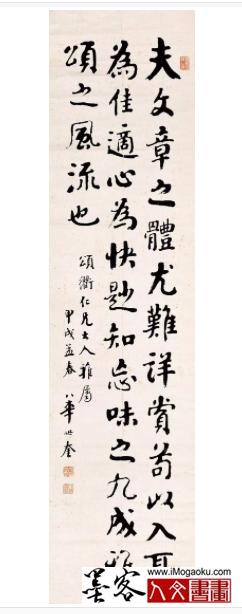 夫文章之體尤難詳賞苟以入耳
為佳適心為快尟知忘味之九成雅
頌之風流也
頌衢仁兄大人雅屬
甲戌孟春 華世奎
www.iMogaoku.com
墨客 人文書畫